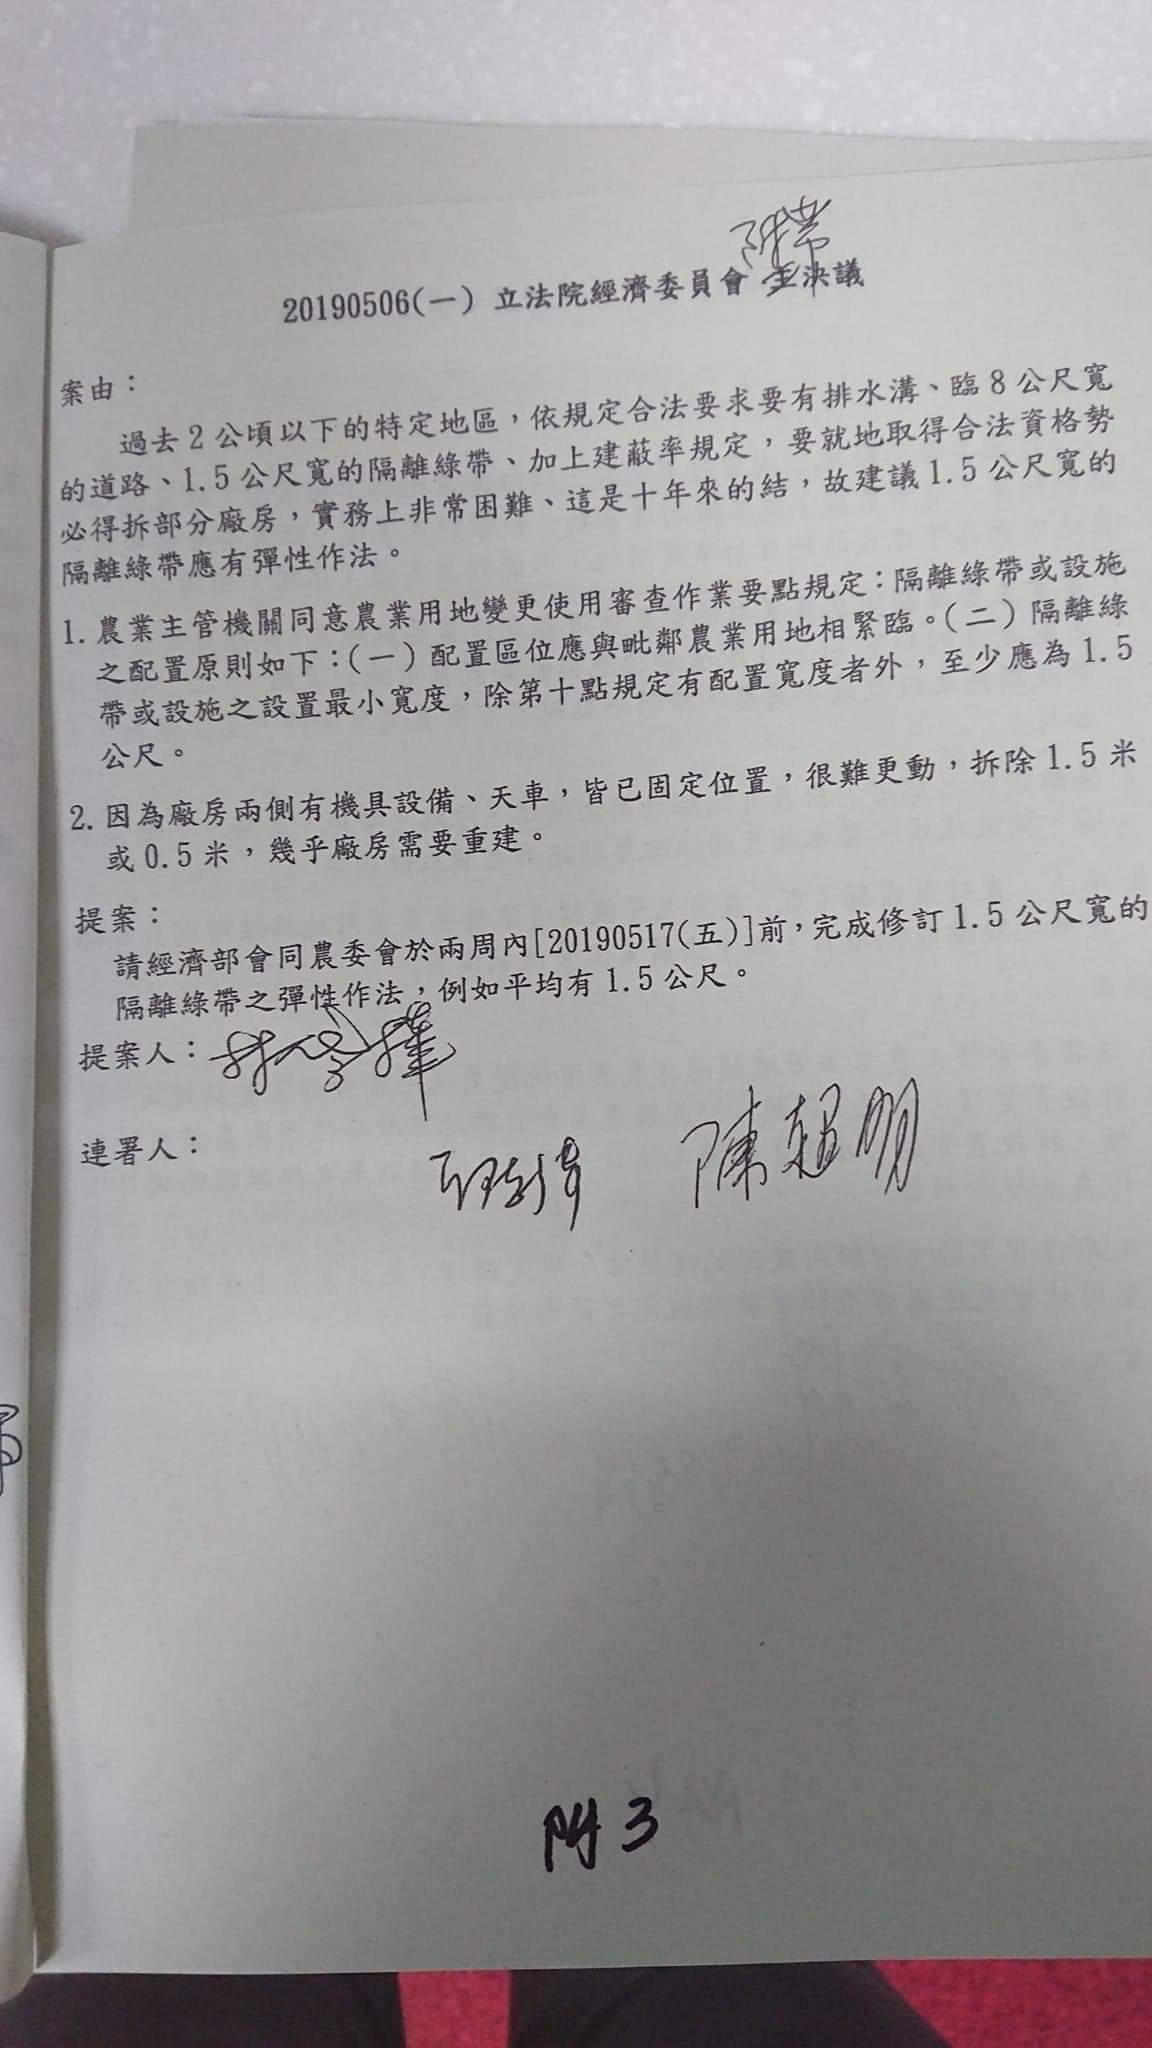 附帶
20190506(一) 立法院經濟委員會 決議
案由：
過去2公頃以下的特定地區，依規定合法要求要有排水溝、臨8公尺寬
的道路、1.5公尺寬的隔離綠帶、加上建蔽率規定，要就地取得合法資格勢
必得拆部分廠房，實務上非常困難、這是十年來的結，故建議1.5公尺寬的
隔離綠帶應有彈性作法。
1.農業主管機關同意農業用地變更使用審查作業要點規定：隔離綠帶或設施
之配置原則如下：(一)配置區位應與毗鄰農業用地相緊臨。(二)隔離綠
帶或設施之設置最小寬度，除第十點規定有配置寬度者外，至少應為1.5
公尺。
2.因為廠房兩側有機具設備、天車，皆已固定位置，很難更動，拆除1.5米
或0.5米，幾乎廠房需要重建。
提案：
請經濟部會同農委會於兩周內[20190517(五)]前，完成修訂1.5公尺寬的
隔離綠帶之彈性作法，例如平均有1.5公尺。
提案人：
連署人：
陳超明
附3